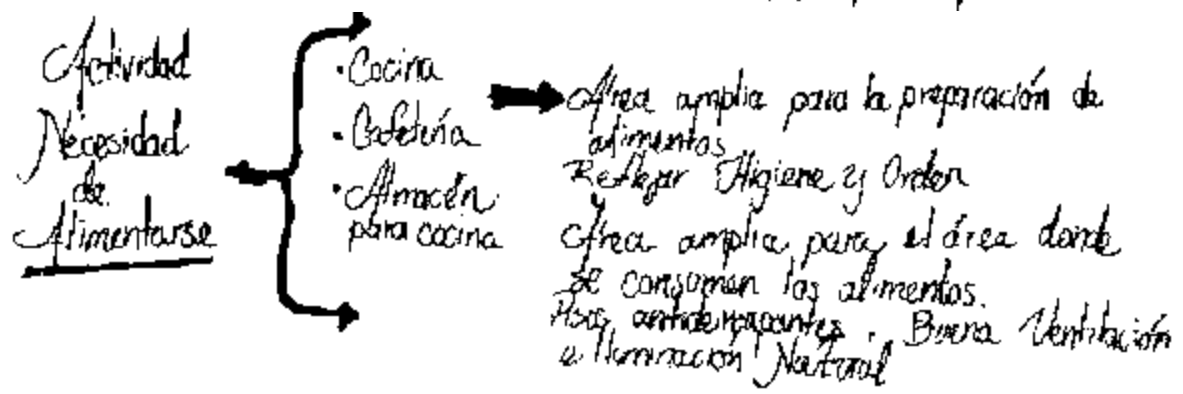 Actividad
Necesidad
de
Alimentarse
• Cocina
• Cafetería
• Almacén
para cocina
Area amplia para la preparación de
alimentos
Reflejar Higiene y Orden
Area amplia para el área donde
se consuman los alimentos.
Pisos antiderrapantes. Buena Ventilación
e Iluminación Natural